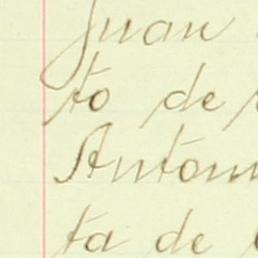 Juan
to de
Anton
ta de